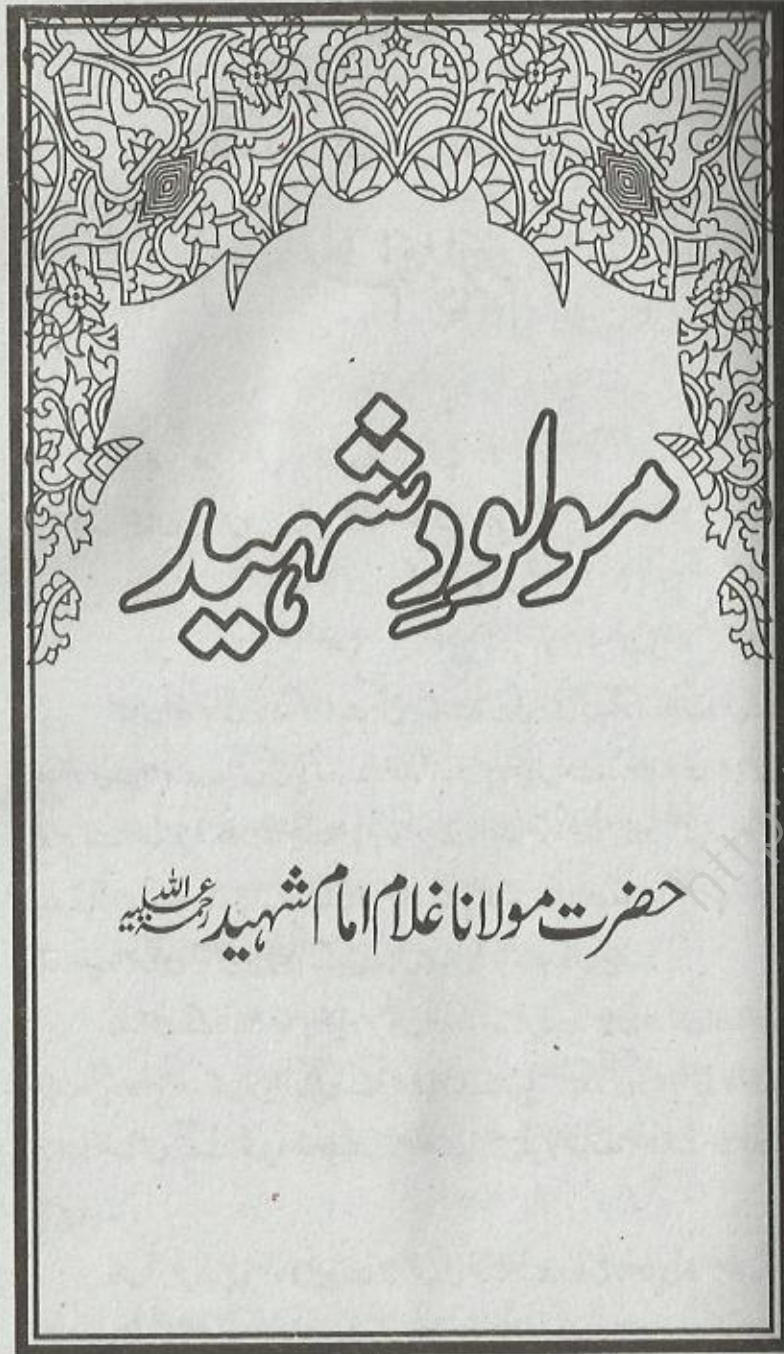 مولودِ شہید
حضرت مولانا غلام امام شہید رحمۃ اللہ علیہ